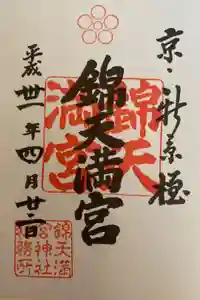 京・新京極
錦天満宮
錦天
満宮
平成卅一年四月廿二日
錦天満
宮神社
務所